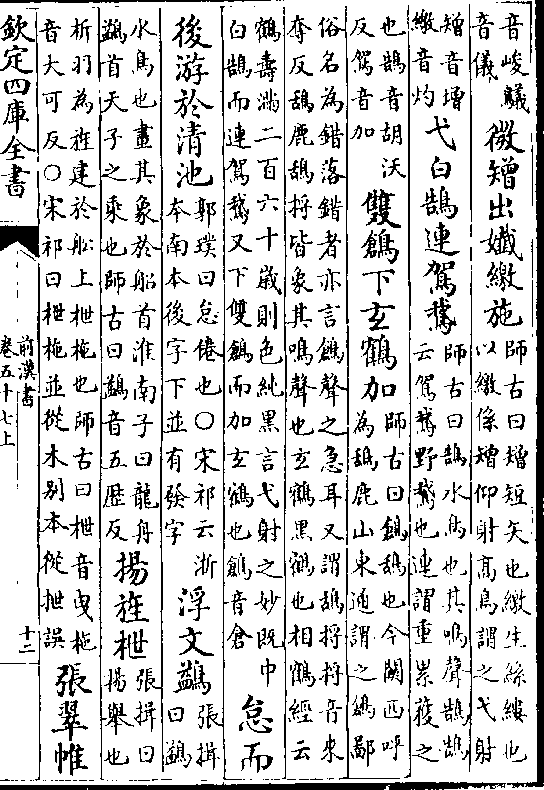 音峻䴊
音儀
微矰出孅繳施
師古曰矰短矢也繳生絲縷也
以繳係矰仰射高鳥謂之弋射
矰音增
繳音灼
弋白鵠連駕鵝
師古曰鵠水鳥也其鳴聲鵠鵠
云駕鵝野鵝也連謂重累獲之
也鵠音胡沃
反駕音加
雙鶬下玄鶴加
師古曰鶬鴰也今關西呼
為鴰鹿山東通謂之鶬鄙
俗名為錯落錯者亦言鶬聲之急耳又謂鴰捋捋音來
奪反鴰鹿鴰捋皆象其鳴聲也玄鶴黑鶴也相鶴經云
鶴壽滿二百六十歲則色純黑言弋射之妙既中
白鵠而連駕鵝又下雙鶬而加玄鶴也鶬音倉
怠而
後游於清池
郭璞曰怠倦也○宋祁云浙
本南本後字下並有發字
浮文鷁
張揖
曰鷁
水鳥也畫其象於船首淮南子曰龍舟
鷁首天子之乘也師古曰鷁音五歷反
揚旌枻
張揖曰
揚舉也
析羽為旌建於船上枻柂也師古曰枻音曳柂
音大可反○宋祁曰枻柂並從木別本從抴誤
張翠帷
欽定四庫全書
前漢書
卷五十七上
十二